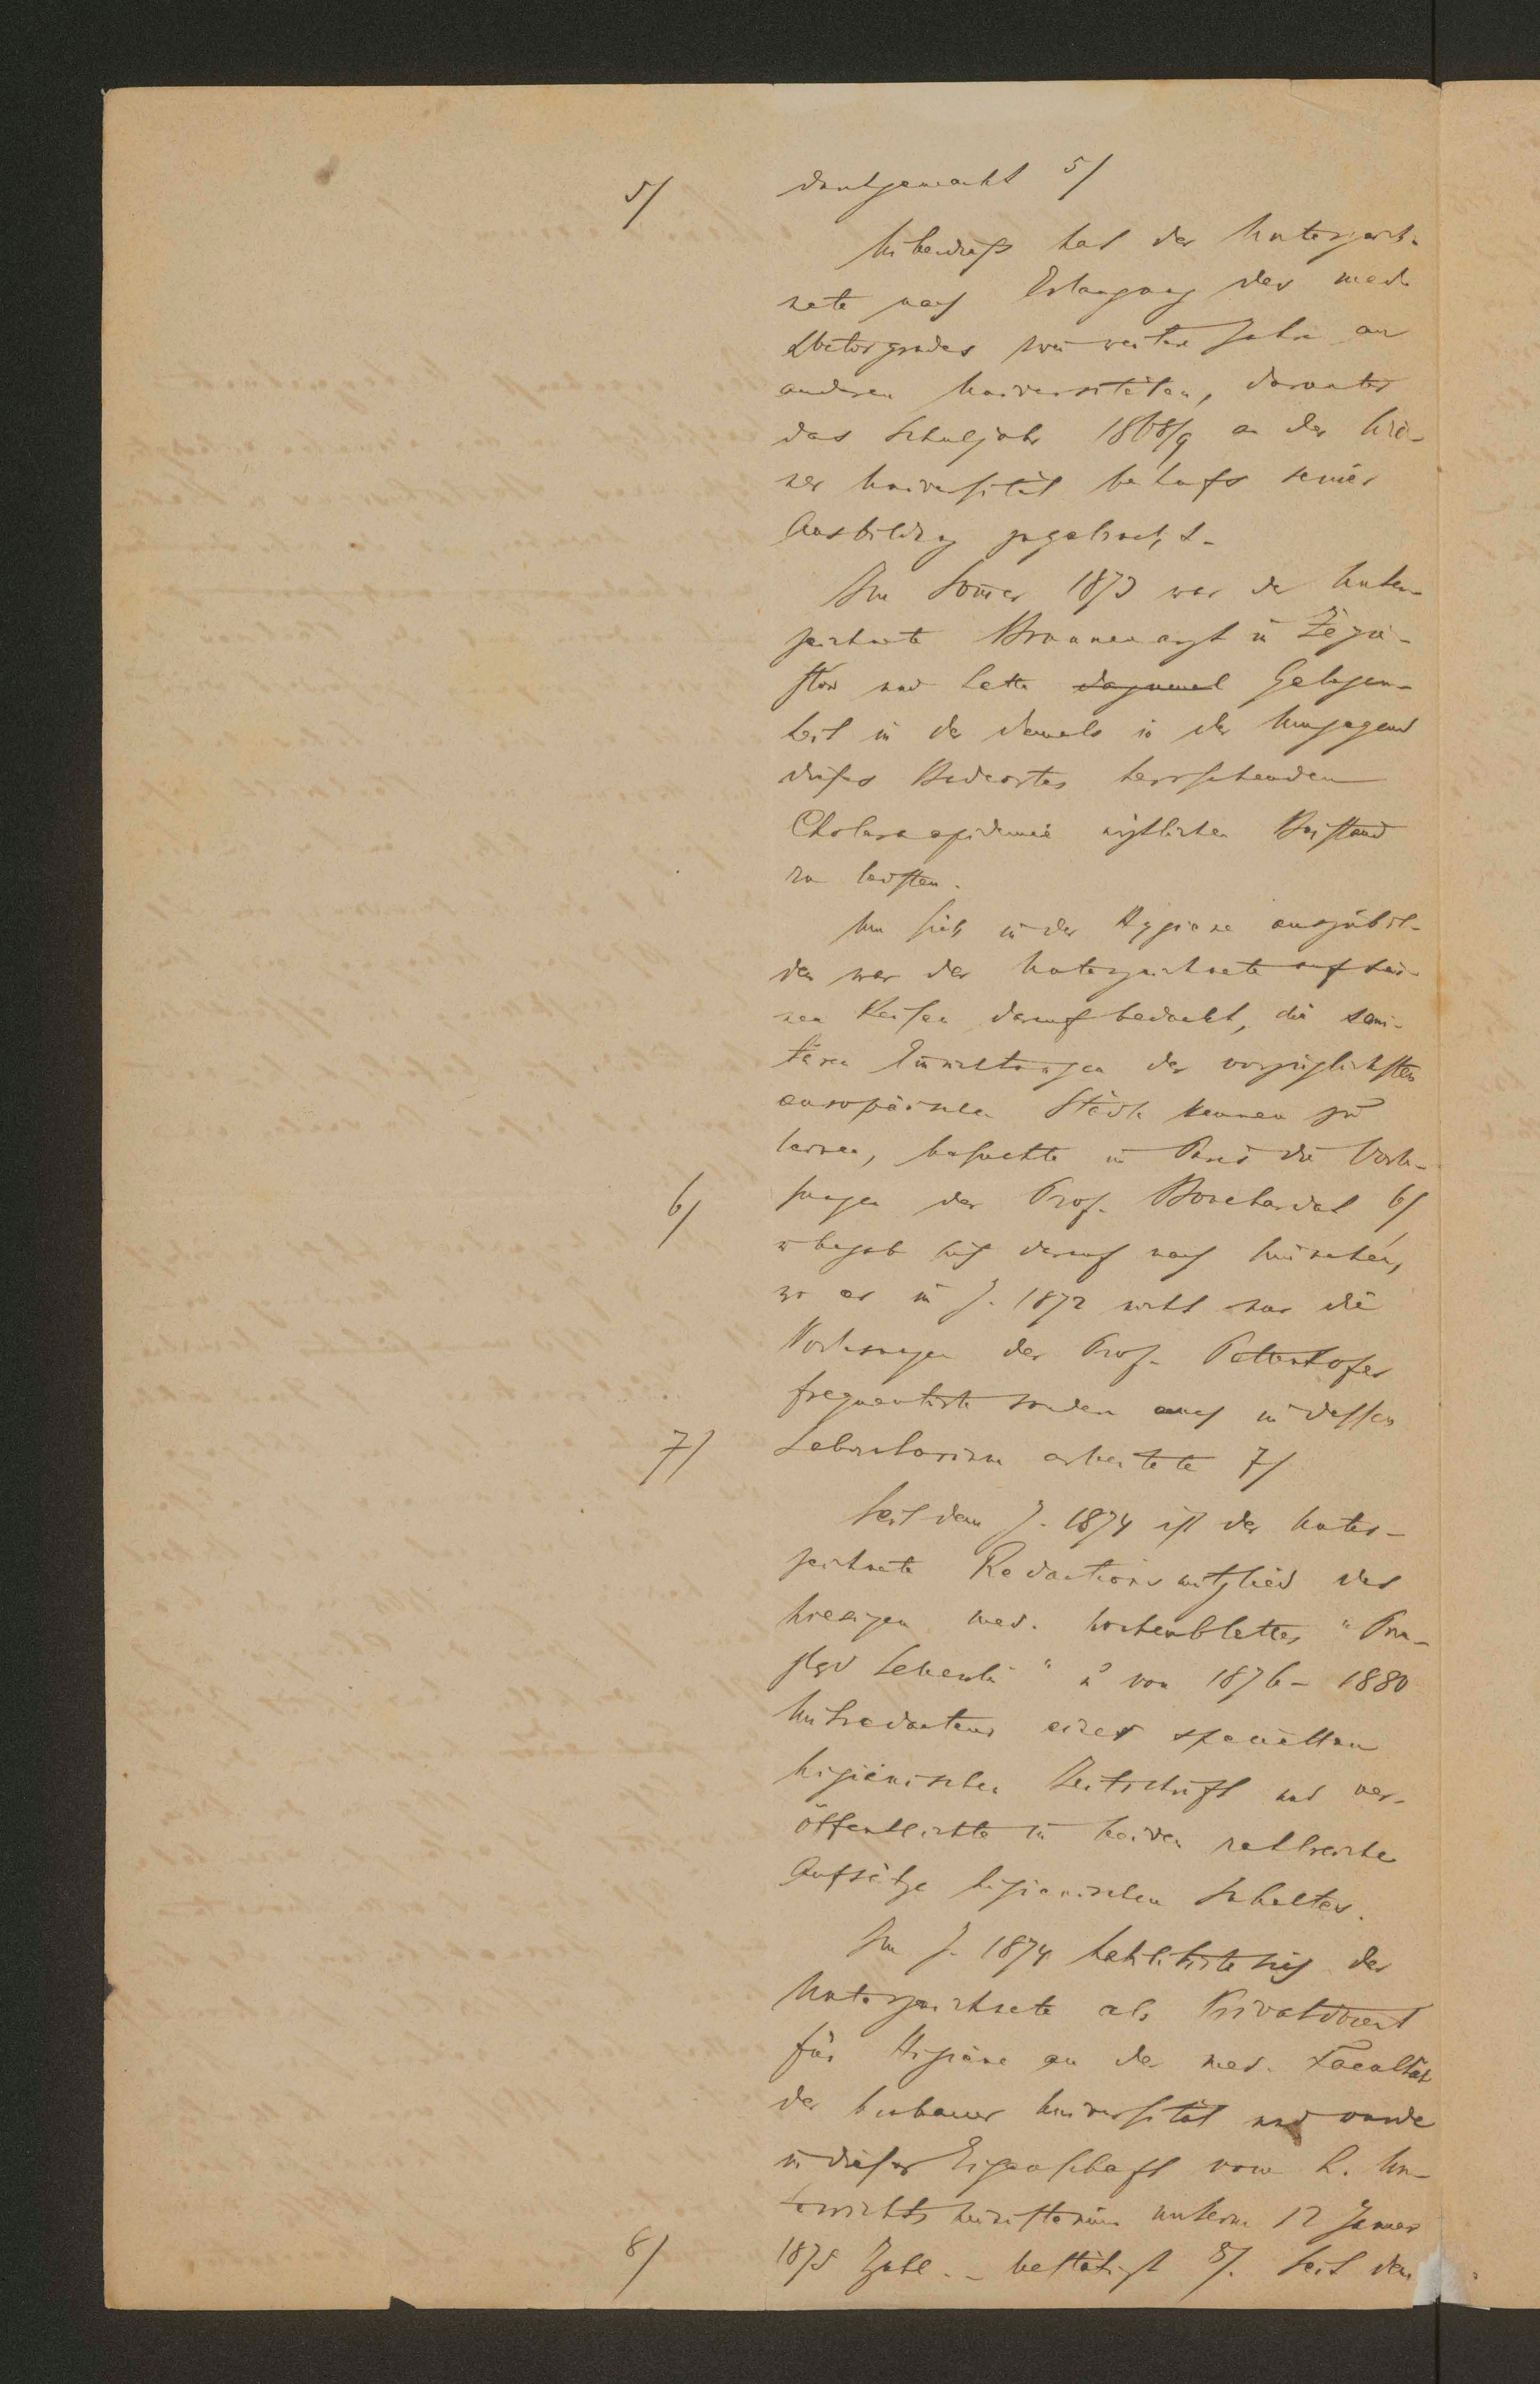 5/ kantgemacht 5/
Überdieß hat der Unterzeich-
nete nach Erlangung des med.
Doctorgrades zwei weitere Jahre an
anderen Universitäten, darunter
das Schuljahr 1868/9 an der Wie-
ner Universität behufs seiner
Ausbildung zugebracht.
Im Sommer 1873 war der Unter-
zeichnete Brunnenarzt in Żegie-
stow und hatte dazumal Gelegen-
heit in der damals in der Umgegend
dieses Badeortes herrschenden
Choleraepidemie ärztlichen Beistand
zu leisten.
Um sich in der Hygiene auszubil-
den war der Unterzeichnete auf sei-
nen Reisen darauf bedacht, die sani-
tären Einrichtungen der vorzüglichsten
europäischen Städte kennen zu
lernen, besuchte in Paris die Vorle-
6/ sungen des Prof. Bouchardat 6/
u begab sich darauf nach München,
wo er im J. 1872 nicht nur die
Vorlesungen des Prof. Pettenkofer
frequentirte sondern auch in dessen
7/ Laboratorium arbeitete 7/
Seit dem J. 1874 ist der Unter-
zeichnete Redactionsmitglied des
hiesigen med. Wochenblattes "Prze-
gląd lekarski" u von 1876 - 1880
Mitredacteur einer speciellen
higienischen Zeitschrift und ver-
öffentlichte in beiden zahlreiche
Aufsätze higienischen Inhaltes.
Im J. 1874 habilitirte sich der
Unterzeichnete als Privatdocent
für Higiene an der med. Facultät
der Krakauer Universität und wurde
in dieser Eigenschaft vom h. Un-
terrichtsministerium unterm 12 Januar
8/ 1875 Zahl. - bestätigt 8/. Seit dem